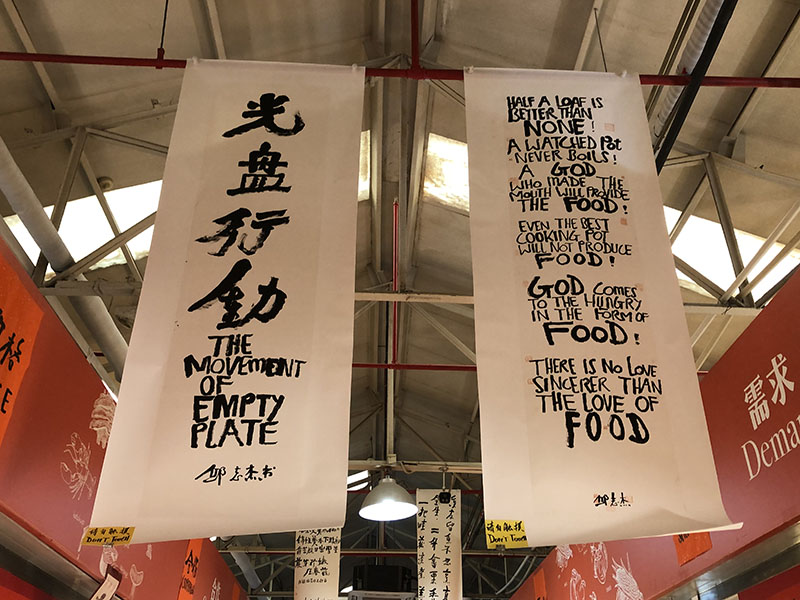 光
盘
行
动
THE
MOVEMENT
OF
EMPTY
PLATE
邱志杰书
请勿触摸
DON'T TOUCH
HALF A LOAF IS
BETTER THAN
NONE!
A WATCHED POT
NEVER BOILS!
A GOD
WHO MADE THE
MOUTH WILL PROVIDE
THE FOOD!
EVEN THE BEST
COOKING POT
WILL NOT PRODUCE
FOOD!
GOD COMES
TO THE HUNGRY
IN THE FORM OF
FOOD!
THERE IS NO LOVE
SINCERER THAN
THE LOVE OF
FOOD
邱志杰
请勿触摸
DON'T TOUCH
需求
Deman
格